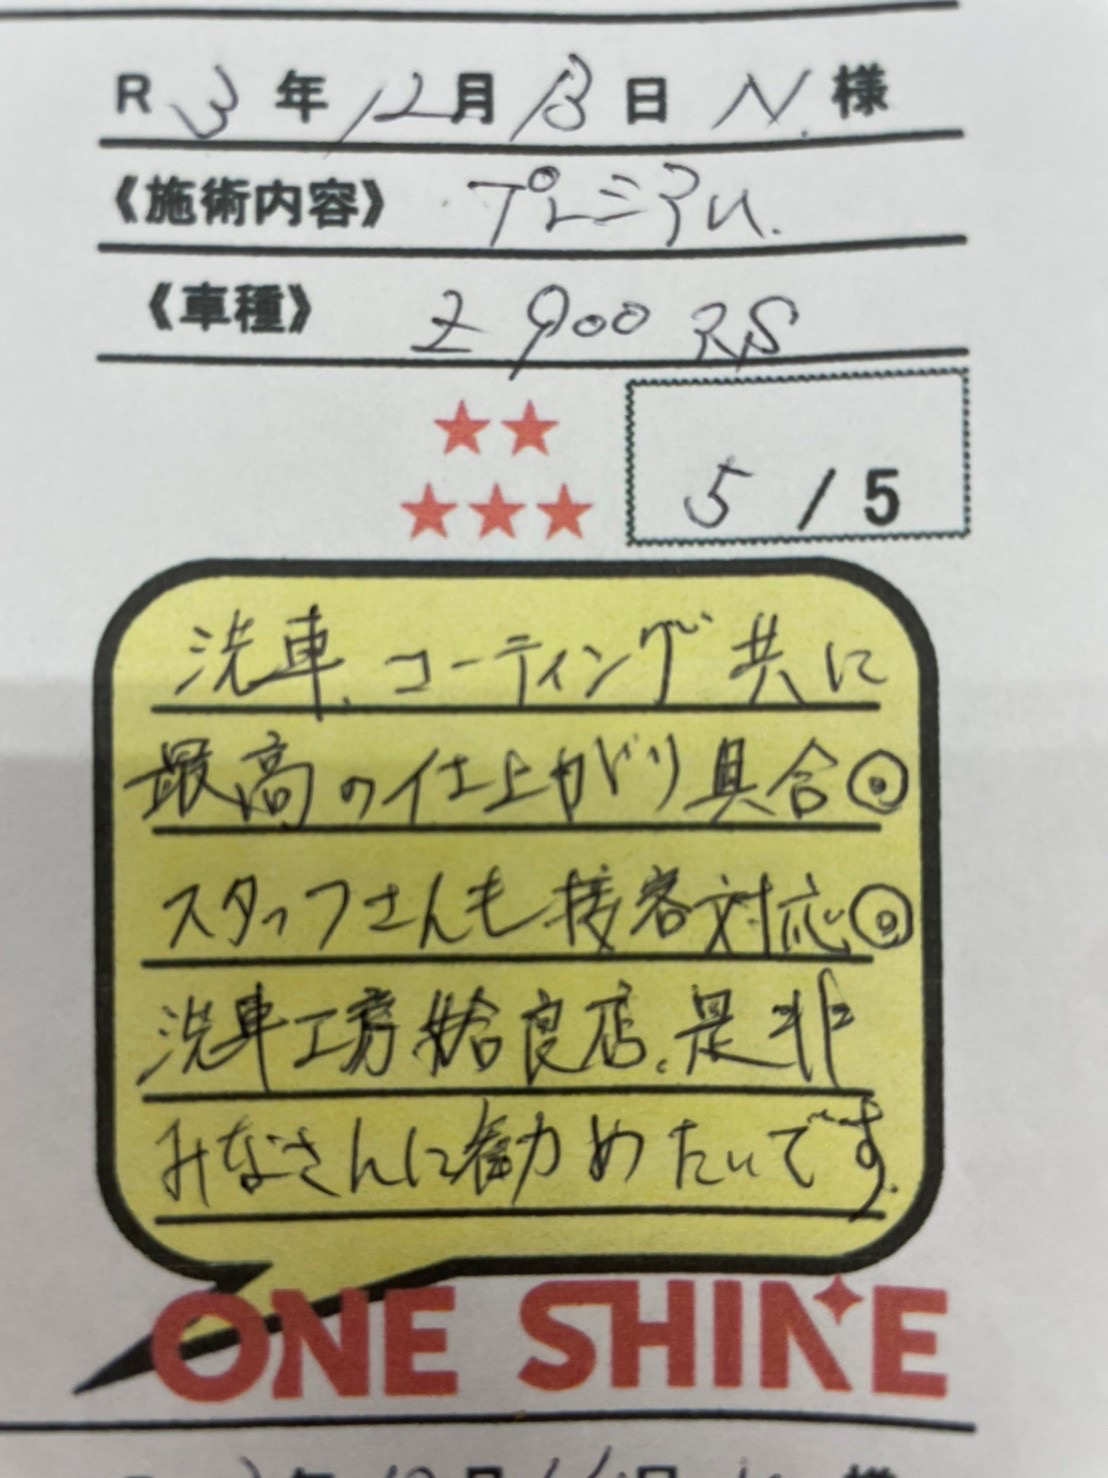 R 3年12月13日 N.様
《施術内容》 プレミアム.
《車種》 Z900RS
5 / 5
洗車、コーティング共に
最高の仕上がり具合◎
スタッフさんも接客対応◎
洗車工房姶良店、是非
みなさんに勧めたいです.
ONE SHINE